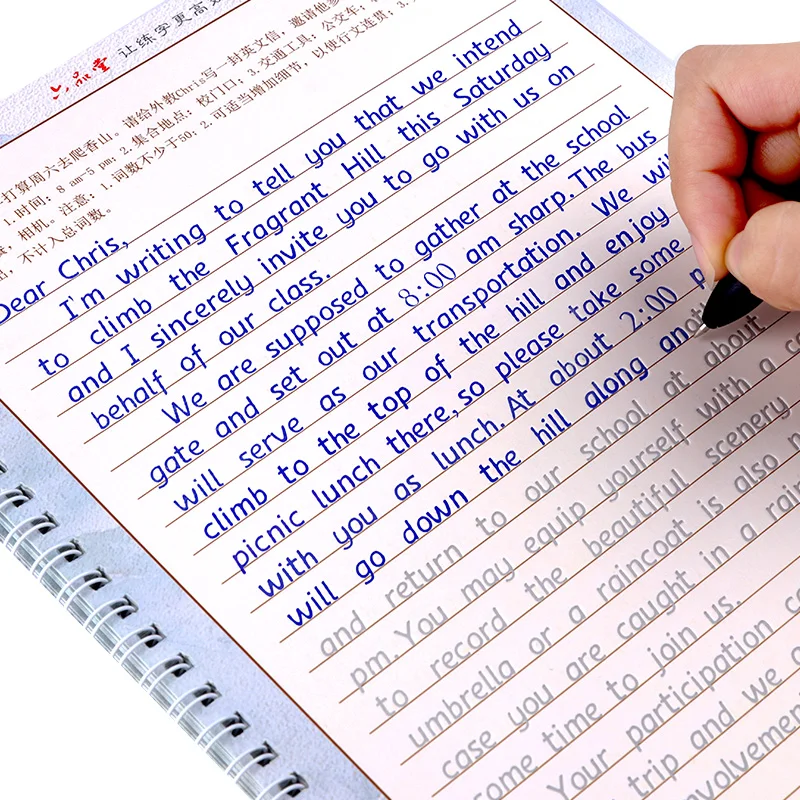 六品堂 让练字更高效
打算周六去爬香山。请给外教Chris写一封英文信，邀请他参
1.时间：8 am-5 pm；2.集合地点：校门口；3.交通工具：公交车；
相机。注意：1.词数不少于50；2.可适当增加细节，以使行文连贯；3.
不计入总词数。
Dear Chris,
I'm writing to tell you that we intend
to climb the Fragrant Hill this Saturday
and I sincerely invite you to go with us on
behalf of our class.
We are supposed to gather at the school
gate and set out at 8:00 am sharp. The bus
will serve as our transportation. We wil
climb to the top of the hill and enjoy
picnic lunch there, so please take some
with you as lunch. At about 2:00 p
will go down the hill along anot
and return to our school at about
pm. You may equip yourself with a ca
to record the beautiful scenery
umbrella or a raincoat is also n
case you are caught in a rain
some time to join us.
Your participation ca
trip and we a
nvolvemen